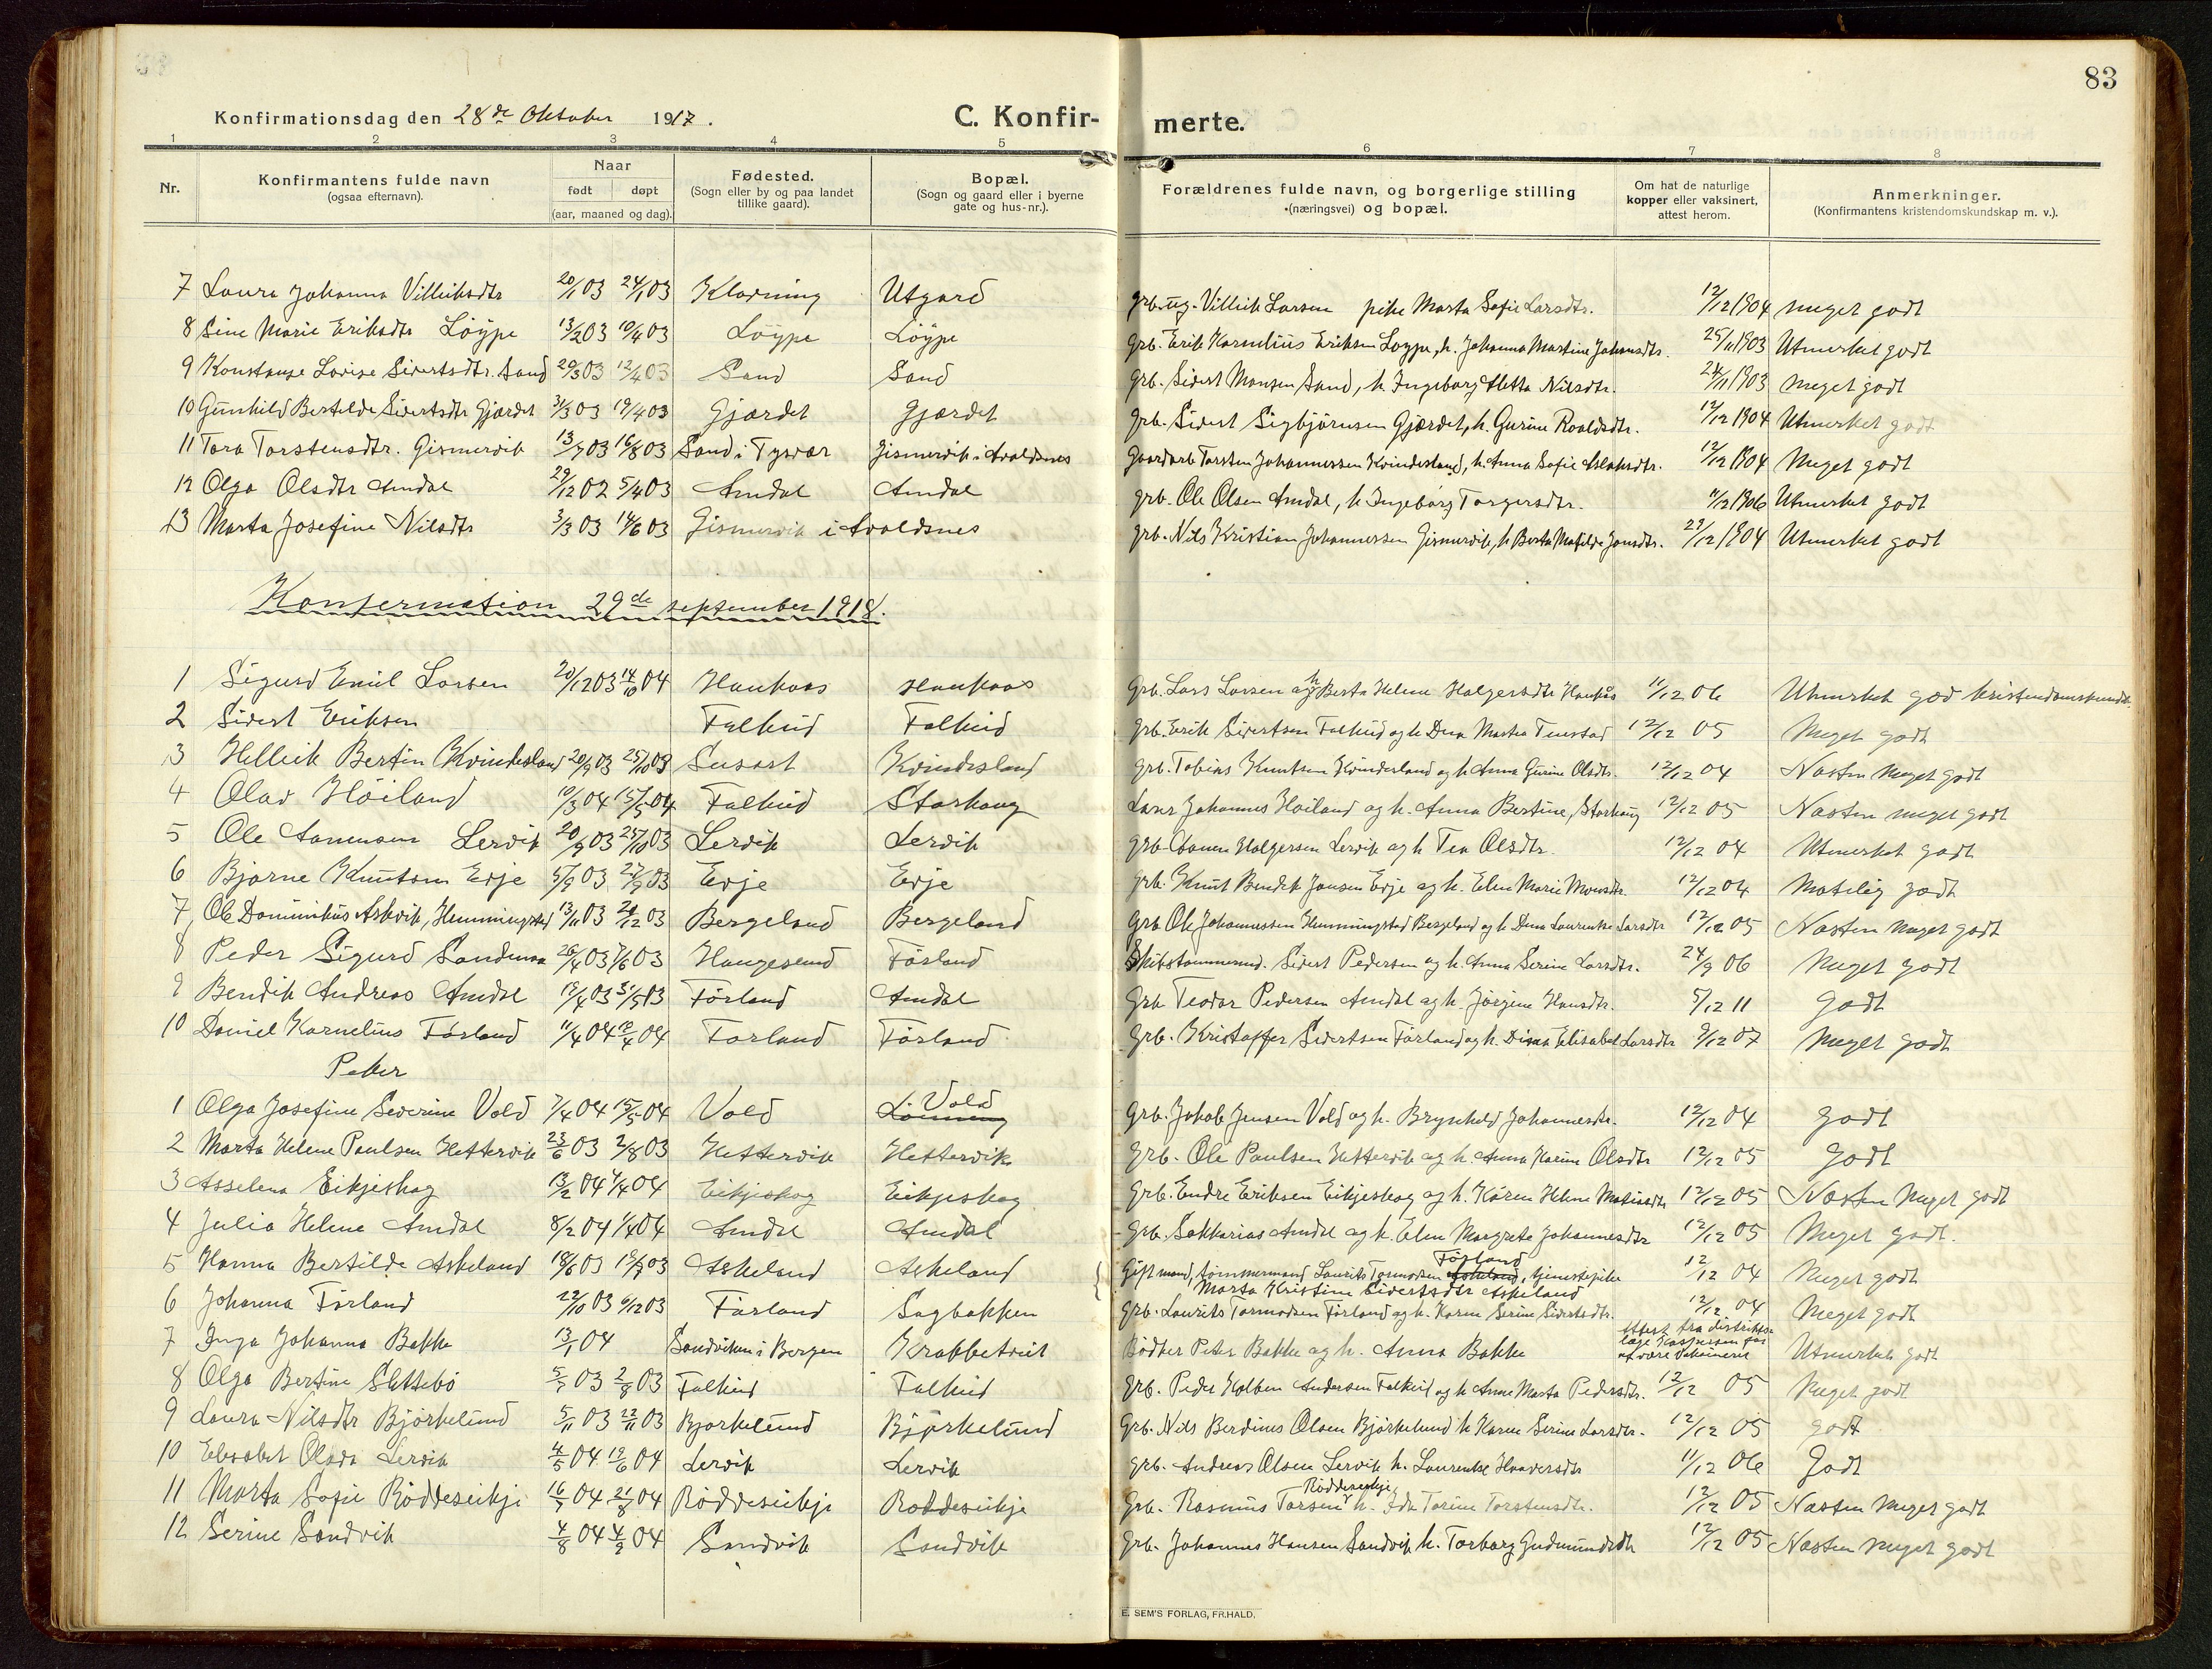 83
Konfirmationsdag den 28de Oktober 1917.
C. Konfir- merte.
1 2 3 4 5 6 7 8
Nr.
Konfirmantens fulde navn
(ogsaa efternavn).
Naar
født døpt
(aar, maaned og dag).
Fødested.
(Sogn eller by og paa landet
tillike gaard).
Bopæl.
(Sogn og gaard eller i byerne
gate og hus-nr.).
Forældrenes fulde navn, og borgerlige stilling
(næringsvei) og bopæl.
Om hat de naturlige
kopper eller vaksinert,
attest herom.
Anmerkninger.
(Konfirmantens kristendomskundskap m. v.).
7 Laura Johanna Villiksdtr 20/1 03 24/1 03 Klovning Utgard grb. ug. Villik Larsen pike Marta Sofie Larsdtr. 12/12 1904 meget godt
8 Sine Marie Eriksdtr Löype 13/2 03 10/4 03 Löype Löype grb. Erik Kornelius Eriksen Loype, h. Johanna Martine Johansdtr. 25/11 1903 Utmerket godt
9 Konstanse Lovise Sivertsdtr. Sand 29/3 03 12/4 03 Sand Sand grb. Sivert Monsen Sand, h. Ingeborg Aletta Nilsdtr. 24/11 1903 meget godt
10 Gunhild Bertilde Sivertsdtr Gjærdet 31/3 03 19/4 03 Gjærdet Gjærdet grb. Sivert Sigbjörnsen Gjærdet, h. Gurine Roaldsdtr. 12/12 1904 Utmerket godt
11 Tora Torstensdtr. Gismervik 13/7 03 16/8 03 Sand i Tysvær Gismervik i Avaldsnes Gaardarb Torsten Johannessen Kvindesland, h. Anna Sofie Aslaksdtr. 12/12 1904 Meget godt
12 Olga Olsdtr Amdal 29/12 02 5/4 03 Amdal Amdal grb. Ole Olsen Amdal, h Ingeborg Torgersdtr. 11/12 1906 Utmerket godt
13 Marta Josefine Nilsdtr 3/3 03 14/6 03 Gismervik i Avaldsnes grb. Nils Kristian Johannessen Gismervik, h Berta Matilde Jonsdtr. 29/12 1904 Utmerket godt
Konfermation 29de september 1918.
1 Sigurd Emil Larsen 20/12 03 14/10 04 Haukaas Haukaas Grb. Lars Larsen og h Berta Helene Holgersdtr Haukås 11/12 06 Utmerket god kristendomskundsk.
2 Sivert Eriksen Falkeid Falkeid Grb. Erik Sivertsen Falkeid og h Dina Martea Tuestad 12/12 05 Meget godt
3 Hellik Bertin Kvindesland 20/9 03 25/10 03 Susort Kvindesland Grb. Tobias Knutsen Kvinderland og h Anna Gurine Olsdtr. 12/12 04 Næsten Meget godt
4 Olav Höiland 10/3 04 15/5 04 Falkeid Storhaug Lærer Johannes Höiland og h. Anna Bertine, Storhaug 12/12 05 Næsten meget godt
5 Ole Aanensen Lervik 20/9 03 25/10 03 Lervik Lervik grb Aanen Holgersen Lervik og h Tea Olsdtr. 12/12 04 Utmerket godt
6 Bjarne Knutsen Evje 5/9 03 27/9 03 Evje Evje grb. Knut Bendik Jansen Evje og h. Elen Marie Monsdtr. 12/12 04 Måtelig godt
7 Ole Dominikus Askvik, Hemmingstad 13/11 03 20/12 03 Bergeland Bergeland Grb Ole Johannessen Hemmingstad Bergeland og h Dina Laurentse Larsdtr 12/12 05 Næsten Meget godt
8 Peder Sigurd Sandnes 26/4 03 7/6 03 Haugesund Förland Skibstømmermd. Sivert Pedersen og h. Anna Serine Larsdtr. 24/9 06 Meget godt
9 Bendik Andreas Amdal 12/4 03 31/5 03 Förland Amdal Grb Teodor Pedersen Amdal og h. Jörgine Hansdtr. 5/12 11 godt
10 Daniel Kornelius Förland 11/4 04 10/4 04 Forland Förland Grb. Kristoffer Sivertsen Förland og h. Dina Elisabet Larsdtr 9/12 07 Meget godt
Piker
1 Olga Josefine Severine Vold 7/4 04 15/5 04 Vold Vold Grb. Jakob Jensen Vold og h. Brynhild Johannesdtr. 12/12 04 godt
2 Marta Helene Paulsen Hettervik 23/6 03 2/8 03 Hettervik Hettervik Grb. Ole Paulsen Hettervik og h. Anna Karine Olsdtr 12/12 05 godt
3 Asselena Eikjeskog 13/2 04 4/4 04 Eikjeskog Eikjeskog Grb. Endre Eriksen Eikjeskog og h. Karen Helene Matiasdtr 12/12 05 Næsten Meget godt
4 Julia Helene Amdal 8/2 04 1/4 04 Amdal Amdal grb. Sakkarias Amdal og h. Elen Margrete Johannesdtr 12/12 05 Meget godt.
5 Hanna Bertilde Askeland 18/6 03 19/7 03 Askeland Askeland Gift mand, tömmermand Laurits Tormodsen Askeland Förland, tjenestepike
Marta Kristine Sivertsdtr Askeland 12/12 04 Meget godt
6 Johanna Förland 22/10 03 6/12 03 Förland Sagbakken Grb. Laurits Tormodsen Förland og h. Karen Serine Sivertsdtr. 12/12 04 Meget godt
7 Inga Johanna Bakke 13/1 04 Sandviken i Bergen Krabbetveit Bödker Peter Bakke og h. Anna Bakke Attest fra distrikts-
læge Kaspersen for
at være vaksinert Utmerket godt
8 Olga Bertine Slettebö 5/7 03 2/8 03 Falkeid Falkeid grb. Peder Kolben Andersen Falkeid og h Anne Marta Pedersdtr. 12/12 05 Meget godt
9 Laura Nilsdtr Björkelund 5/11 03 22/11 03 Bjorkelund Björkelund Grb. Nils Berdines Olsen Björkelund h Karen Serine Larsdtr. 12/12 05 godt
10 Elisabet Olsdtr Lervik 4/5 04 12/6 04 Lervik Lervik grb. Andreas Olsen Lervik h. Laurentse Haaversdtr 11/12 06 Godt
11 Marta Sofie Röddeseikje 16/7 04 21/8 04 Röddeseikje Roddeseikje Grb. Rasmus Torsen Röddeseikje h. Ida Torine Torstensdtr. 12/12 05 Næsten Meget godt
12 Serine Sandvik 4/8 04 4/9 04 Sandvik Sandvik grb. Johannes Hansen Sandvik h. Torborg Gudmundsdtr 12/12 05 Næsten Meget godt
E. SEM'S FORLAG, FR.HALD.